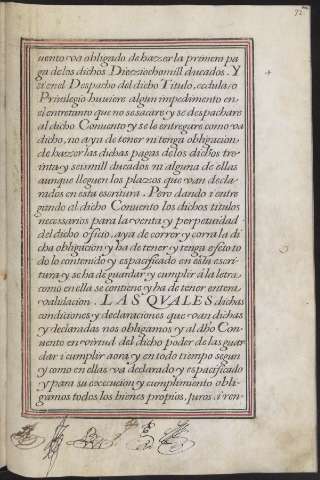 72
uento va obligado de hazzer la primera pa
ga de los dichos Diezziochomill ducados. Y
si en el Despacho del dicho Titulo, cedula, o
Privilegio huuiere algun impedimento en
el entretanto que no se sacare y se despachare
al dicho Conuento y se le entregare como va
dicho, no aya de tener ni tenga obligacion
de hazzer las dichas pagas de los dichos tre
inta y seismill ducados ni alguna de ellas
aunque lleguen los plazzos que van decla
rados en esta escritura. Pero dando i entre
gando al dicho Conuento los dichos titulos
necessarios para la venta y perpetuidad
del dicho oficio, aya de correr y corra la di
cha obligacion y ha de tener y tenga efeto to
do lo contenido y espacificado en esta escri
tura y se ha de guardar y cumplir á la letra
como en ella se contiene y ha de tener entera
validacion. LAS QVALES dichas
condiciones y declaraciones que van dichas
y declaradas nos obligamos y al dho Con
uento en virtud del dicho poder de las guar
dar i cumplir aora y en todo tiempo segun
y como en ellas va declarado y espacificado
y para su execucion y cumplimiento obli
gamos todos los bienes propios, juros i ren